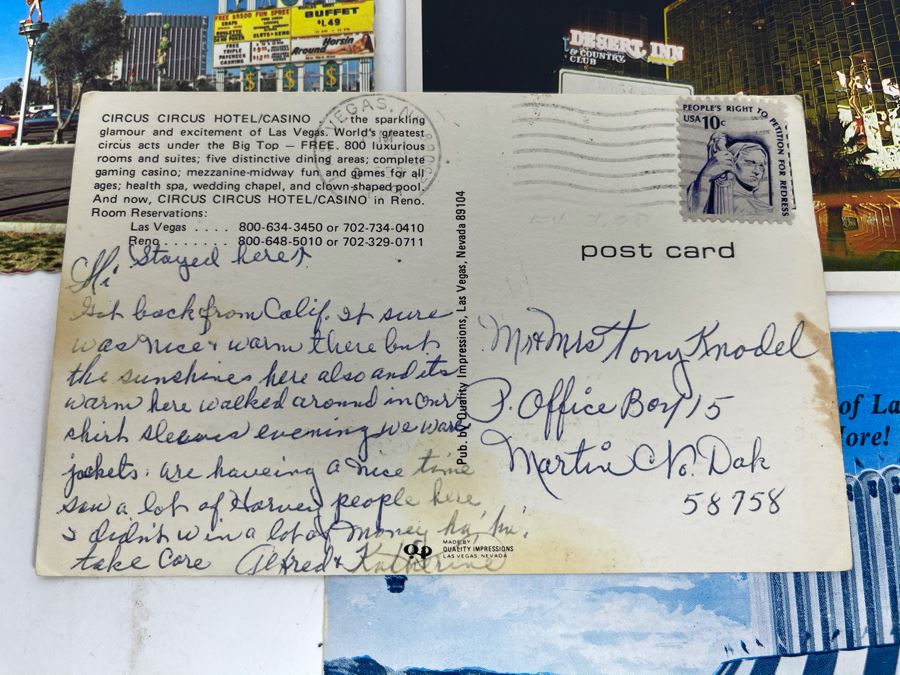 FREE $3500 FUN SPREE
CRAPS
ROULETTE
SLOTS • KENO
FREE
TRIPLE
PAYCHECK
CASHING
BUFFET
$1.49
Horsin'
Around
$ $ $ $
DESERT INN
& COUNTRY
CLUB
CIRCUS CIRCUS HOTEL/CASINO the sparkling
glamour and excitement of Las Vegas. World's greatest
circus acts under the Big Top — FREE. 800 luxurious
rooms and suites; five distinctive dining areas; complete
gaming casino; mezzanine-midway fun and games for all
ages; health spa, wedding chapel, and clown-shaped pool.
And now, CIRCUS CIRCUS HOTEL/CASINO in Reno.
Room Reservations:
Las Vegas . . . . 800-634-3450 or 702-734-0410
Reno . . . . . . . 800-648-5010 or 702-329-0711
VEGAS, N
PEOPLE'S RIGHT TO PETITION FOR REDRESS
USA 10c
post card
Stayed here
Hi
Got back from Calif. It sure
was nice & warm there but
the sunshines here also and its
warm here walked around in our
shirt sleeves evening we wore
jackets. are haveing a nice time
saw a lot of Harvey people here
I didn't win a lot of money ha, ha!
take care Alfred & Katherine
Pub. by Quality Impressions, Las Vegas, Nevada 89104
Mr & Mrs Tony Knodel
P. Office Box 15
Martin No. Dak
58758
qp
MADE BY
QUALITY IMPRESSIONS
LAS VEGAS, NEVADA
of La
More!